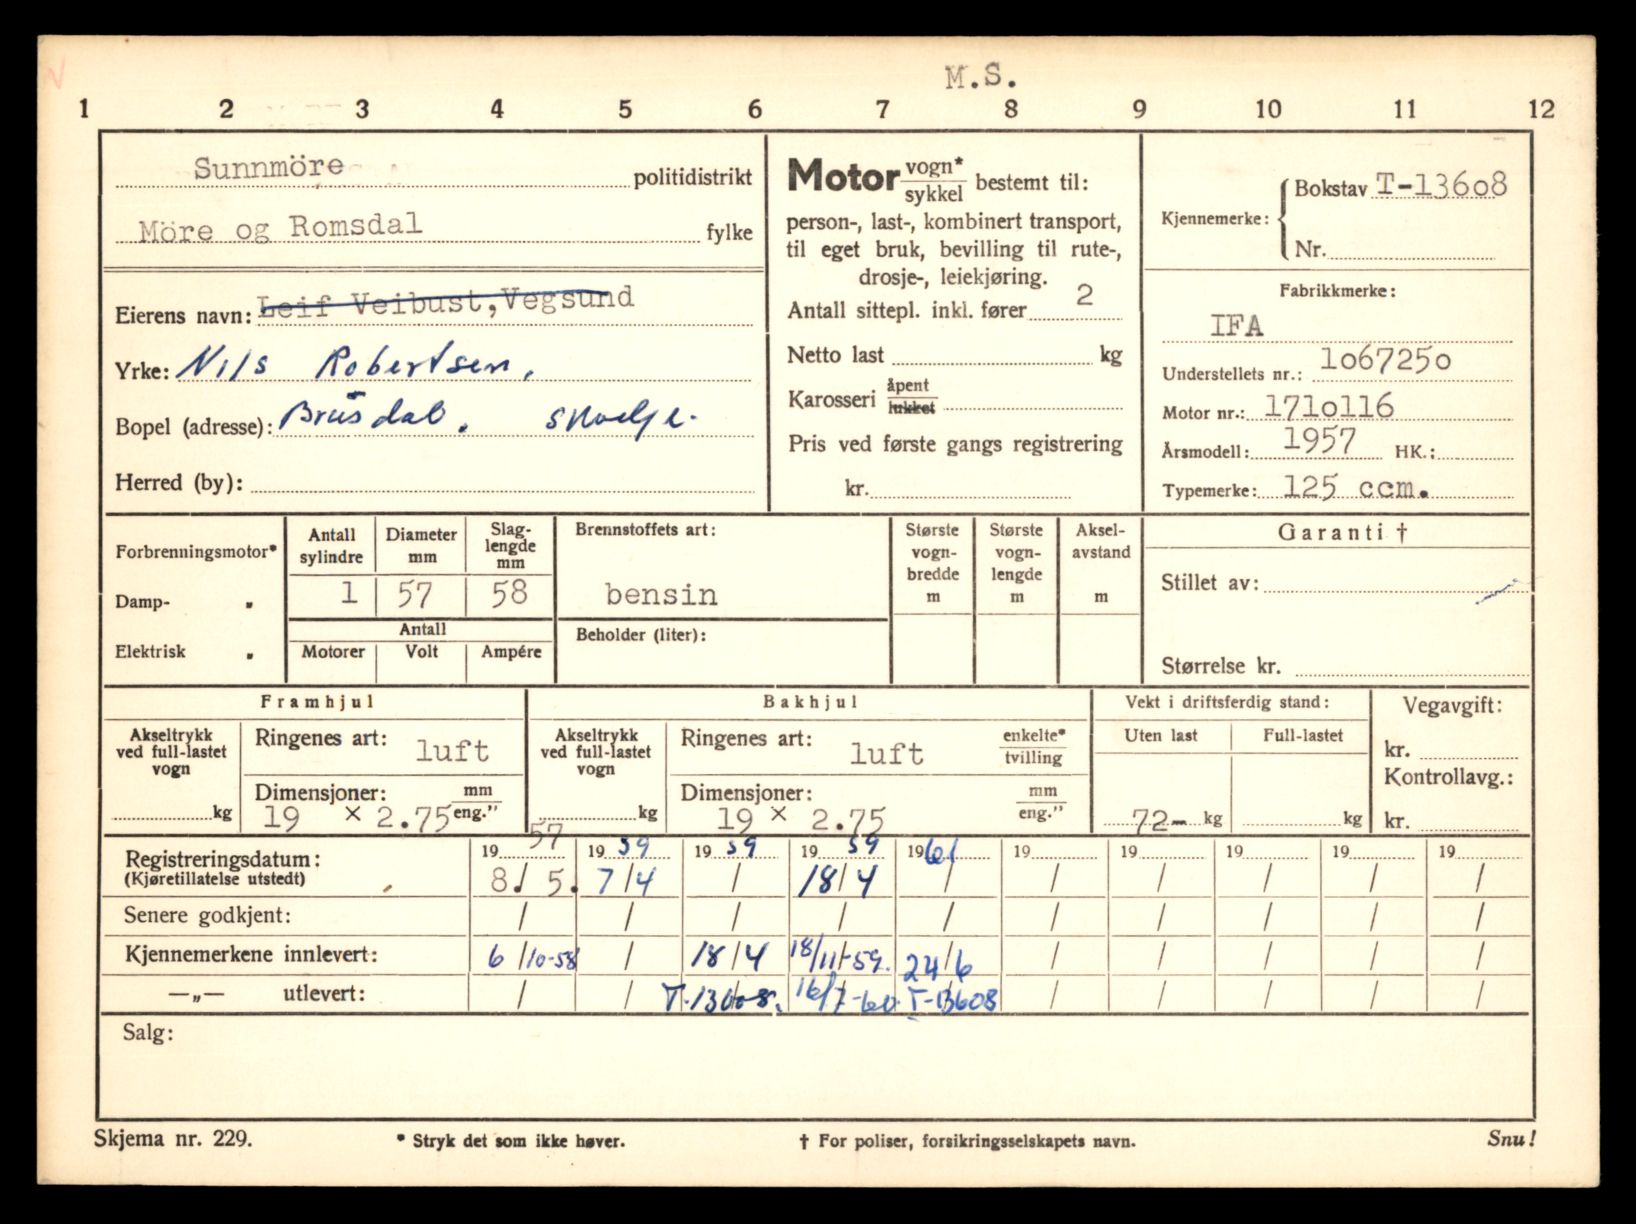 M.S.
1 2 3 4 5 6 7 8 9 10 11 12
Sunnmöre politidistrikt
Möre og Romsdal fylke
Eierens navn: Leif Veibust, Vegsund
Yrke: Nils Robertsen.
Bopel (adresse): Brusdal.
Herred (by):
Motor vogn* sykkel bestemt til:
person-, last-, kombinert transport,
til eget bruk, bevilling til rute-,
drosje-, leiekjøring.
Antall sittepl. inkl. fører 2
Netto last kg
Karosseri åpent lukket
Pris ved første gangs registrering
kr.
Kjennemerke: Bokstav T-13608
Nr.
Fabrikkmerke:
IFA
Understellets nr.: 1067250
Motor nr.: 1710116
Årsmodell: 1957 HK.:
Typemerke: 125 ccm.
Forbrenningsmotor*
Damp- „
Elektrisk „
Antall sylindre Diameter mm Slag-lengde mm
1 57 58
Antall
Motorer Volt Ampére
Brennstoffets art:
bensin
Beholder (liter):
Største vogn-bredde m
Største vogn-lengde m
Aksel-avstand m
Garanti †
Stillet av:
Størrelse kr.
Framhjul
Akseltrykk ved full-lastet vogn
kg
Ringenes art: luft
Dimensjoner: mm eng."
19 × 2.75
Bakhjul
Akseltrykk ved full-lastet vogn
kg
Ringenes art: luft enkelte* tvilling
Dimensjoner: mm eng."
19 × 2.75
Vekt i driftsferdig stand:
Uten last Full-lastet
72- kg kg
Vegavgift:
kr.
Kontrollavg.:
kr.
Registreringsdatum: 19 57 19 59 19 59 19 59 19 61 19 19 19 19 19
(Kjøretillatelse utstedt) 8/ 5. 7/4 / 18/4 / / / / / /
Senere godkjent: / / / / / / / / / /
Kjennemerkene innlevert: 6/10-58 / 18/4 18/11-59. 24/6 / / / / /
—„— utlevert: / / T-13608. 16/7-60. T-13608 / / / / /
Salg:
Skjema nr. 229.
* Stryk det som ikke høver.
† For poliser, forsikringsselskapets navn.
Snu!